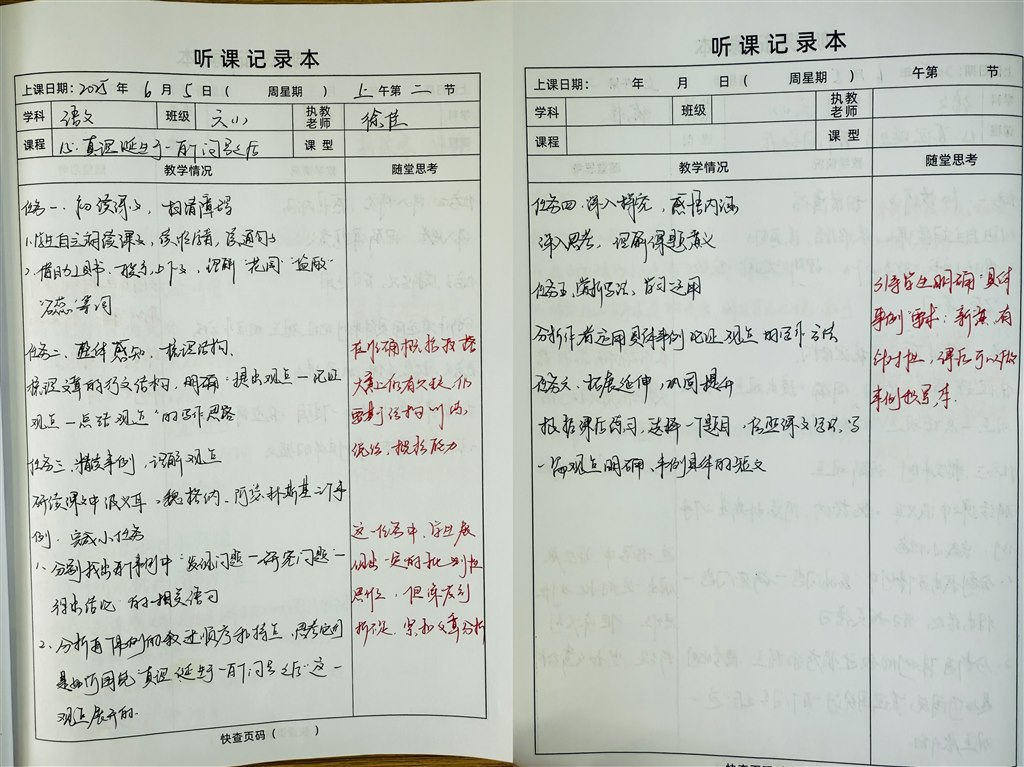 听课记录本
上课日期：2025 年 6 月 5 日（ 周星期 ） 上 午第 二 节
学科 语文 班级 六(1) 执教老师 徐佳
课程 15.真理诞生于一百个问号之后 课 型
教学情况 随堂思考
任务一、初读课文，扫清障碍
1.学生自主朗读课文，读准字音，读通句子
2.借助工具书、联系上下文，理解“花圃”“盗贼”
等词
任务二、整体感知，梳理结构.
梳理文章的行文结构，明确“提出观点—论证
观点—总结观点”的写作思路
在准确概括段落
大意上仍有欠缺，仍
概括能力
任务三、精读事例，理解观点
研读课文中波义耳、魏格纳、阿瑟林斯基三个事
例，完成小任务
1.分别找出两事例中“发现问题—研究问题—
得出结论”的相关语句
2.分析每件事例的叙述顺序和特点，思考它们
是如何围绕“真理诞生于一百个问号之后”这一
观点展开的.
这一任务中，学生展
现出一定的批判性
思维，但深度
不足，
快查页码（ ）
听课记录本
上课日期： 年 月 日（ 周星期 ） 午第 节
学科 班级 执教老师
课程 课 型
教学情况 随堂思考
任务四、深入探究，感悟内涵
深入思考，理解课题意义
任务五、赏析写法，学习运用
分析作者运用具体事例论证观点的写作方法
任务六、拓展延伸，巩固提升
根据课后练习，选择一个题目，仿照课文写法，写
一篇观点明确、事例具体的短文
引导学生明确“具体
事例”要求：新颖、有
针对性，课后可以做
事例
快查页码（